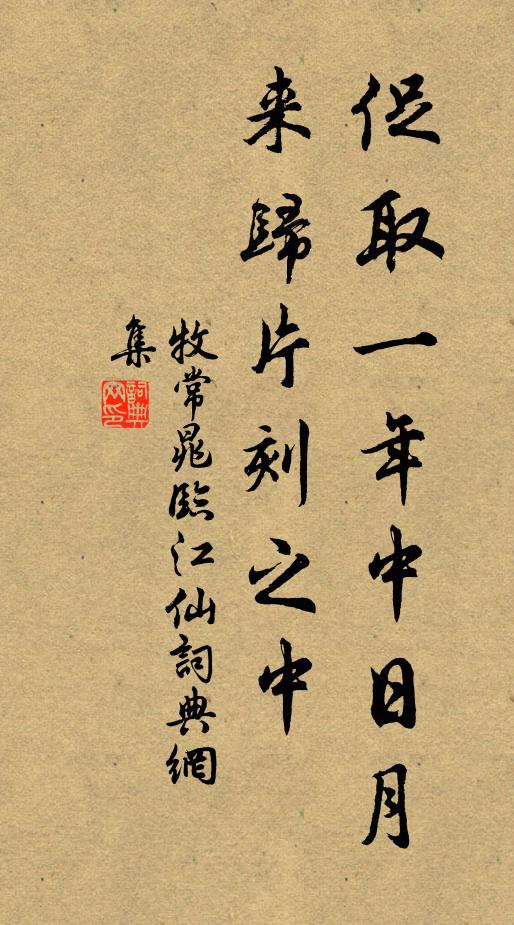 促取一年中日月
来歸片刻之中
牧常晁臨江仙詞典網
集
詞典
网印